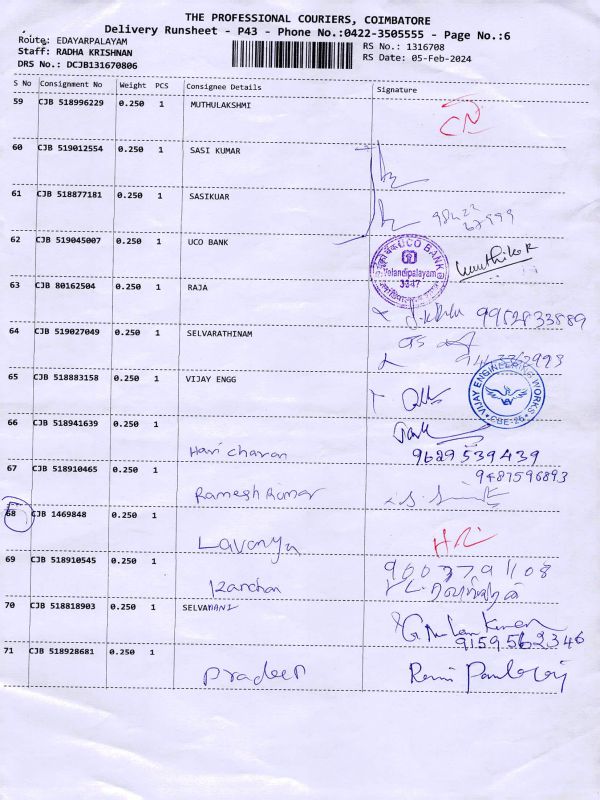 THE PROFESSIONAL COURIERS, COIMBATORE
Delivery Runsheet - P43 - Phone No.:0422-3505555 - Page No.:6
Route: EDAYARPALAYAM
RS No.: 1316708
Staff: RADHA KRISHNAN
RS Date: 05-Feb-2024
DRS No.: DCJB131670806
S No Consignment No Weight PCS Consignee Details Signature
59 CJB 518996229 0.250 1 MUTHULAKSHMI
60 CJB 519012554 0.250 1 SASI KUMAR
61 CJB 518877181 0.250 1 SASIKUAR
62 CJB 519045007 0.250 1 UCO BANK
UCO BANK
Velandipalayam
3347
63 CJB 80162504 0.250 1 RAJA
9952833889
64 CJB 519027049 0.250 1 SELVARATHINAM
65 CJB 518883158 0.250 1 VIJAY ENGG
VIJAY ENGINEERING WORKS
CBE-25
66 CJB 518941639 0.250 1 Hari charan
9629539439
67 CJB 518910465 0.250 1 Ramesh Kumar
9487596893
68 CJB 1469848 0.250 1 Lavanya
69 CJB 518910545 0.250 1 Kanchan
9003791108
70 CJB 518818903 0.250 1 SELVAMANI
9159562346
71 CJB 518928681 0.250 1 Pradeep